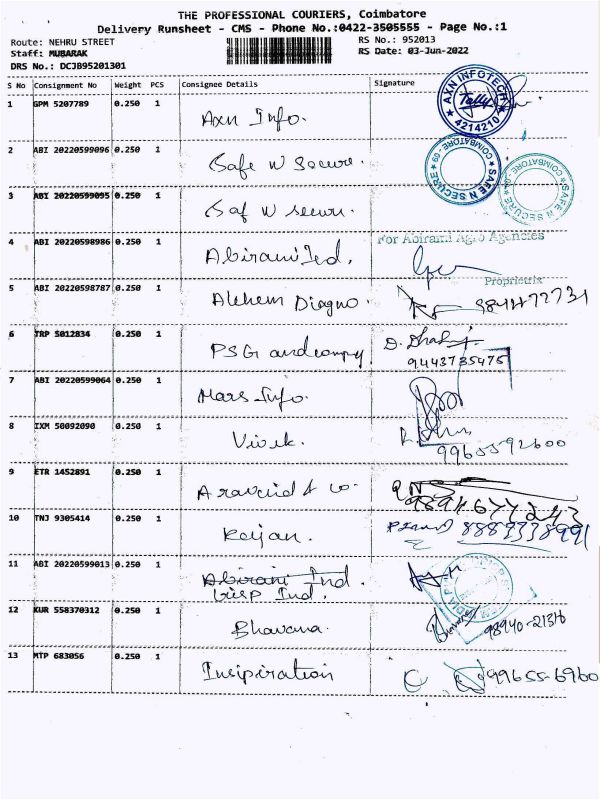 THE PROFESSIONAL COURIERS, Coimbatore
Delivery Runsheet - CMS - Phone No.:0422-3505555 - Page No.:1
Route: NEHRU STREET RS No.: 952013
Staff: MUBARAK RS Date: 03-Jun-2022
DRS No.: DCJB95201301
S No Consignment No Weight PCS Consignee Details Signature
1 GPM 5207789 0.250 1 Axn Info. AXN INFOTECH Tally 4214210
2 ABI 20220599096 0.250 1 Safe N Secure. SAFE N SECURE COIMBATORE
3 ABI 20220599095 0.250 1 Saf N secur. SAFE N SECURE COIMBATORE
4 ABI 20220598986 0.250 1 Abirami Ind. For Abirami Agro Agencies
Proprietrix
5 ABI 20220598787 0.250 1 Alchem Diagno.
6 TRP 5012834 0.250 1 PSG and compy D. 9443735475
7 ABI 20220599064 0.250 1 Mars Info.
8 IXM 50092090 0.250 1 Vivek. 9965592600
9 ETR 1452891 0.250 1 Aravind & co. 9894677243
10 TNJ 9305414 0.250 1 8883338991
11 ABI 20220599013 0.250 1 Abirani Ind.
Ind.
12 KUR 558370312 0.250 1 Bhavana. 98940-21316
13 MTP 683056 0.250 1 Insipiration 99655-6960